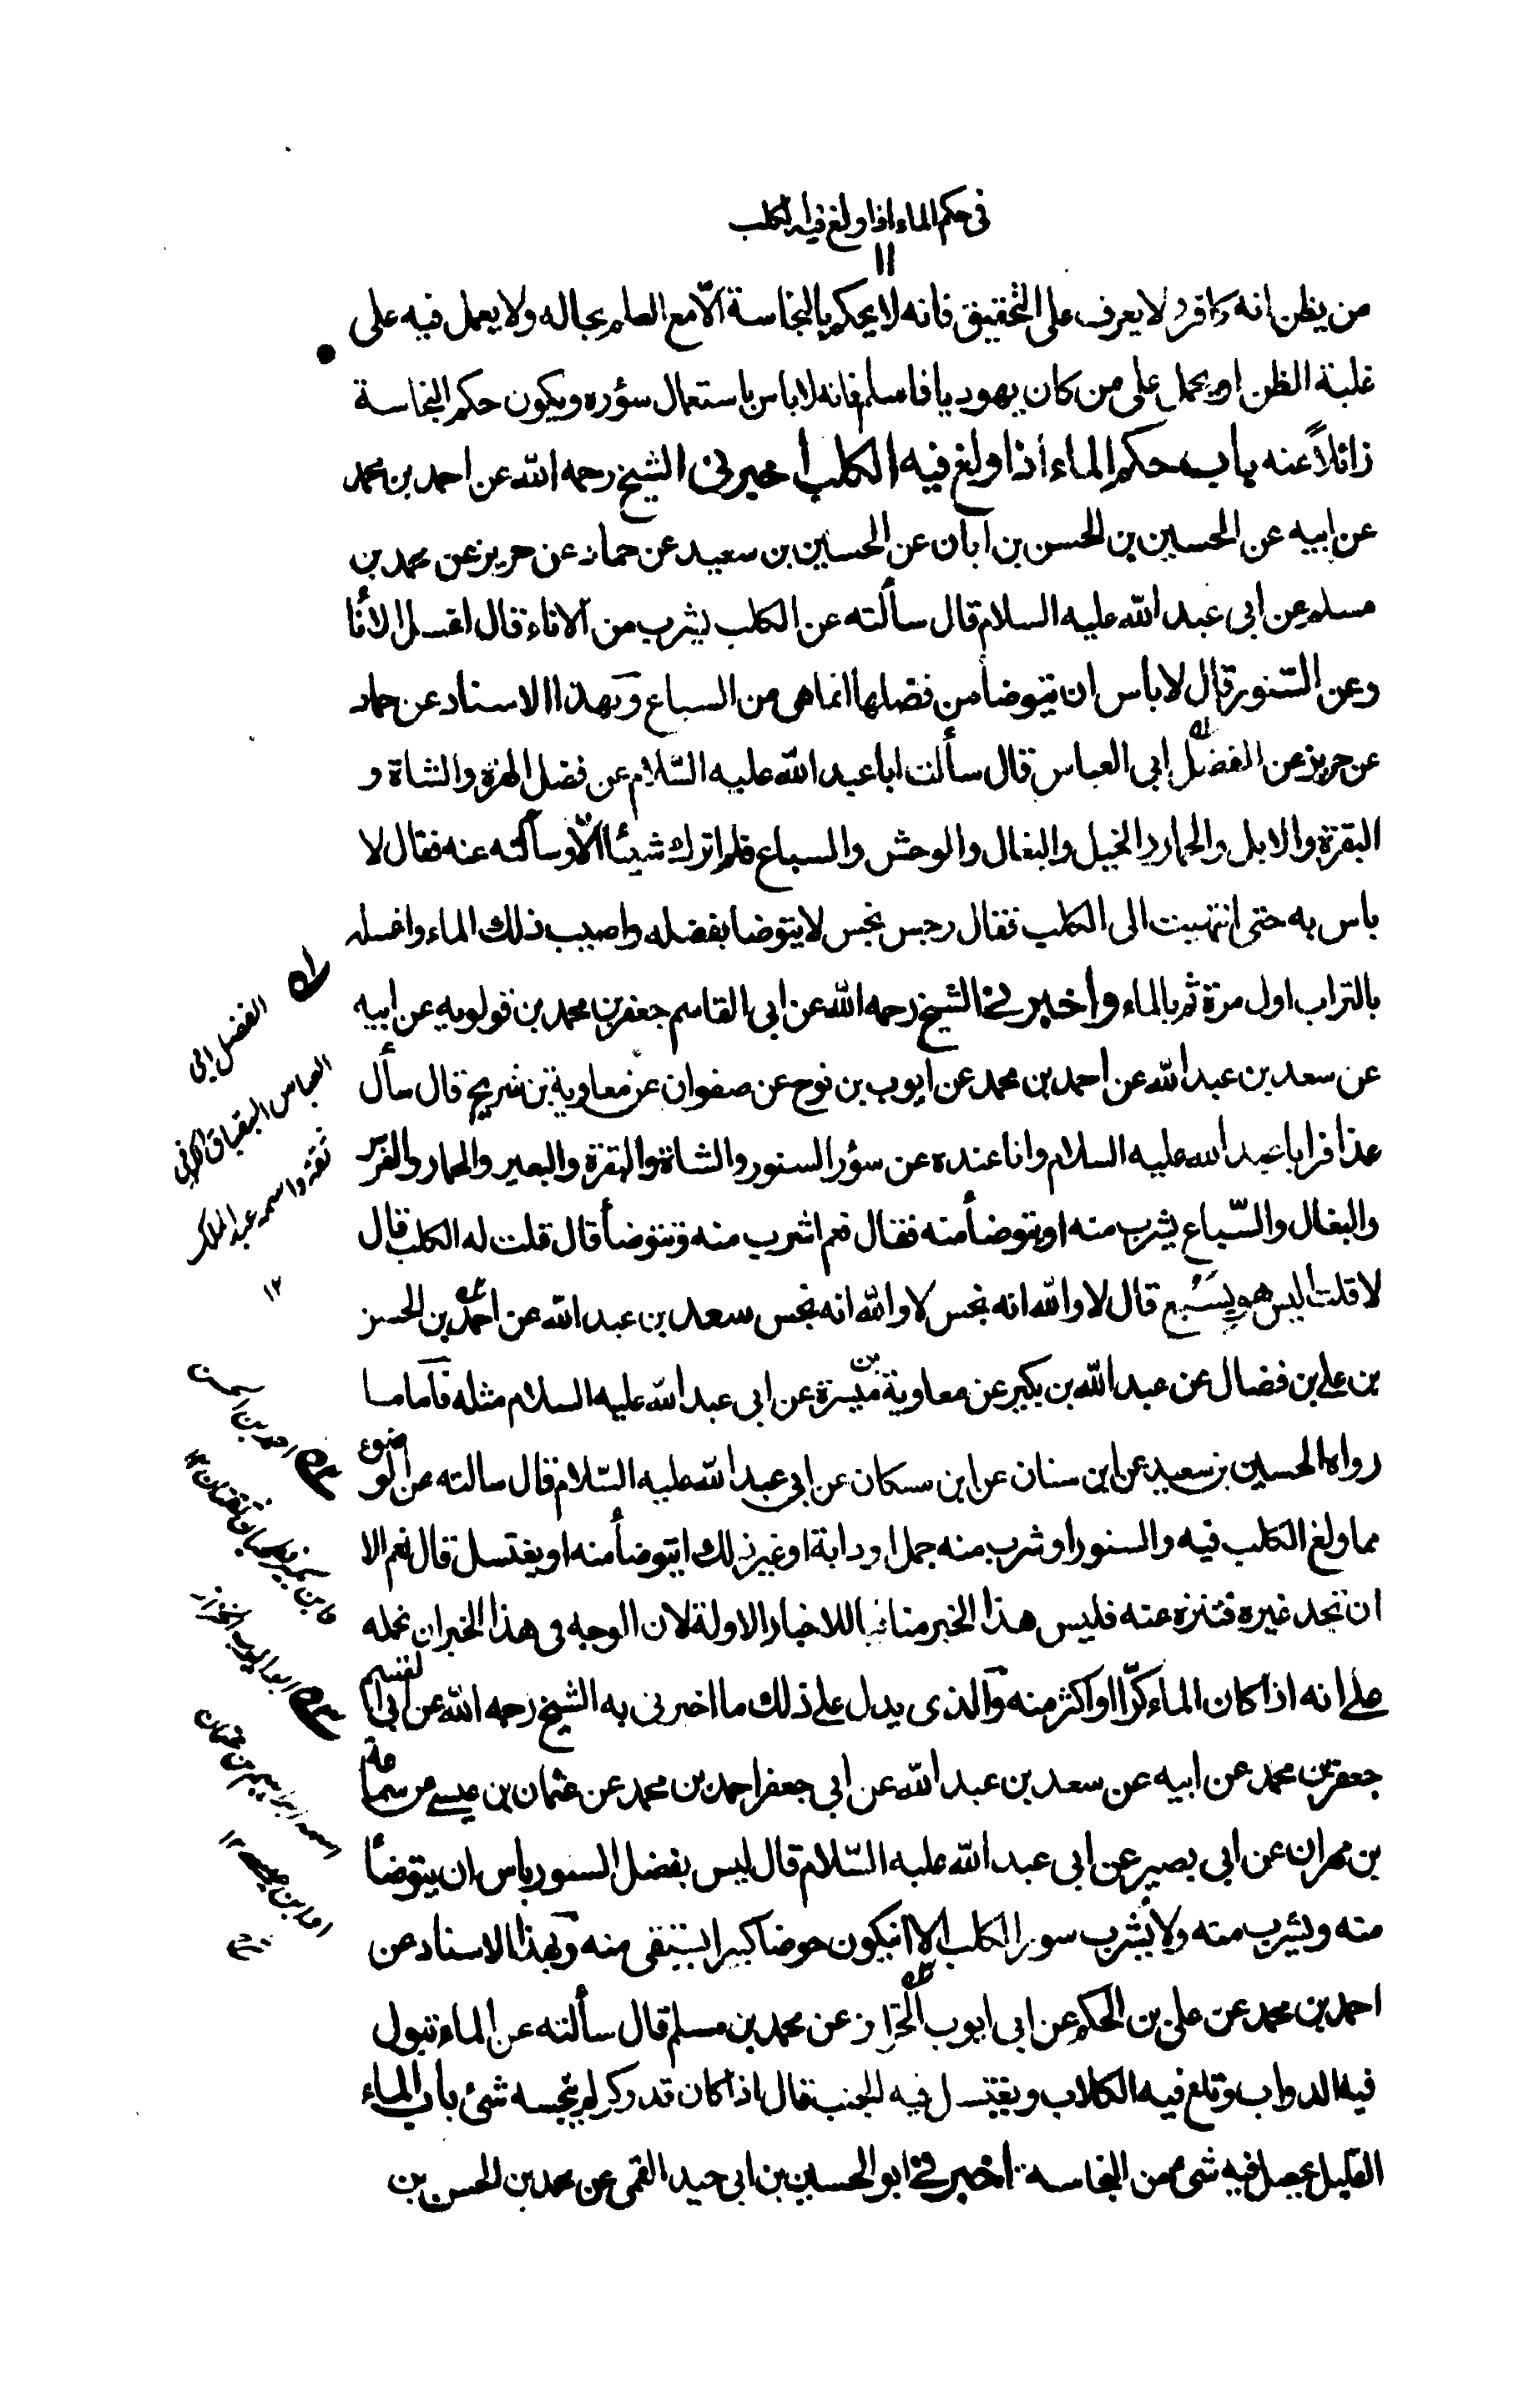 في حكم الماء اذا ولغ فيه الكلب
١١
من يظن انه كافر ولا يعرف على التحقيق فانه لا يحكم بالنجاسة الّا مع العلم بحاله ولا يعمل فيه على
غلبة الظن او يحمل على من كان يهوديا فاسلم فانه لا باس باستعمال سؤره ويكون حكم النجاسة
زائلاً عنه باب حكم الماء اذا ولغ فيه الكلب أخبرنى الشيخ رحمه الله عن احمد بن محمد
عن ابيه عن الحسين بن الحسن بن ابان عن الحسين بن سعيد عن حماد عن حريز عن محمد بن
مسلم عن ابى عبد الله عليه السلام قال سألته عن الكلب يشرب من الاناء قال اغسل الاناء
وعن السّنور قال لا باس ان يتوضأ من فضلها انما هى من السباع وبهذا الاسناد عن حماد
عن حريز عن الفضل ابى العباس قال سألت ابا عبد الله عليه السّلام عن فضل الهرة والشاة و
البقرة والابل والحمار والخيل والبغال والوحش والسباع فلم اترك شيئا الّا وسألته عنه فقال لا
باس به حتى انتهيت الى الكلب فقال رجس نجس لا يتوضا بفضله واصبب ذلك الماء واغسله
بالتراب اول مرة ثم بالماء وأخبرنى الشيخ رحمه الله عن ابى القاسم جعفر بن محمد بن قولويه عن ابيه
عن سعد بن عبد الله عن احمد بن محمد عن ايوب بن نوح عن صفوان عن معاوية بن شريح قال سأل
عذافر ابا عبد الله عليه السلام وانا عنده عن سؤر السنور والشاة والبقرة والبعير والحمار والفرس
والبغال والسّباع يشرب منه او يتوضأ منه فقال نعم اشرب منه وتوضأ قال قلت له الكلب قال
لا قلت اليس هو بسَبُع قال لا والله انه نجس لا والله انه نجس سعد بن عبد الله عن احمد بن الحسن
بن على بن فضال عن عبد الله بن بكير عن معاوية بن ميسرة عن ابى عبد الله عليه السلام مثله فاما ما
رواه الحسين بن سعيد عن ابن سنان عن ابن مسكان عن ابى عبد الله عليه السّلام قال سالته عن الوضوء
مما ولغ الكلب فيه والسنور او شرب منه جمل او دابة او غير ذلك ايتوضأ منه او يغتسل قال نعم الا
ان تجد غيره فتنزه عنه فليس هذا الخبر منافيا للاخبار الاولة لان الوجه فى هذا الخبر ان نحمله
على انه اذا كان الماء كرّا او اكثر منه والذى يدل على ذلك ما اخبرنى به الشيخ رحمه الله عن ابى القسم
جعفر بن محمد عن ابيه عن سعد بن عبد الله عن ابى جعفر احمد بن محمد عن عثمان بن عيسى عن سماعة
بن مهران عن ابى بصير عن ابى عبد الله عليه السّلام قال ليس بفضل السنور باس ان يتوضأ
منه ويشرب منه ولا يشرب سور الكلب الا ان يكون حوضا كبيرا يستقى منه وبهذا الاسناد عن
احمد بن محمد عن على بن الحكم عن ابى ايوب الخزاز عن محمد بن مسلم قال سألته عن الماء تبول
فيه الدواب وتلغ فيه الكلاب ويغتسل فيه الجنب قال اذا كان قدر كر لم ينجسه شئ باب الماء
القليل يحصل فيه شئ من النجاسة أخبرنى ابو الحسين بن ابى جيد القمى عن محمد بن الحسن بن
الفضل ابى
العباس البقباق الكوفى
ثقة واسمه عبد الملك
١٢
احمد بن الحسن
ابو ايوب الخزاز
اسمه ابراهيم بن عثمان
او ابن عيسى ١٢